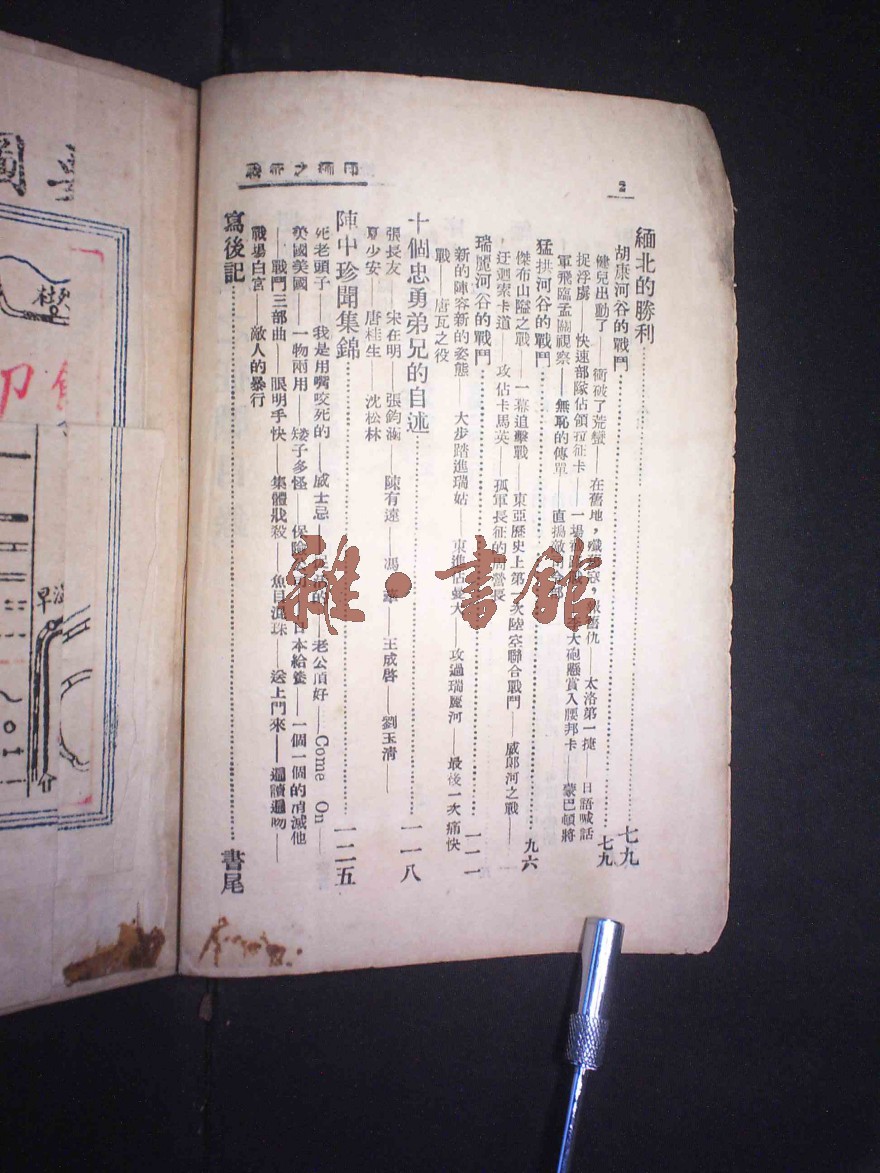 2
緬北的勝利……七九
胡康河谷的戰鬥……七九
健兒出動了——衝破了荒蠻——在舊地，殲舊寇，報舊仇——太洛第一捷——日語喊話
捉浮虜——快速部隊佔領拉征卡——一場 大砲懸賞入腰邦卡——蒙巴頓將
軍飛臨孟關視察——無恥的傳單——直搗敵
猛拱河谷的戰鬥……九六
傑布山隘之戰——一幕追擊戰——東亞歷史上第一次陸空聯合戰鬥——威郎河之戰——
迂迴索卡道——攻佔卡馬英——孤軍長征的 營長
瑞麗河谷的戰鬥……一一一
新的陣容新的姿態——大步踏進瑞姑——東進佔 大——攻過瑞麗河——最後一次痛快
戰——唐瓦之役
十個忠勇弟兄的自述……一一八
張長友——宋在明——張鈞 ——陳有遠——馮 ——王成啓——劉玉清——
夏少安——唐桂生——沈松林
陣中珍聞集錦……一二五
死老頭子——我是用嘴咬死的——威士忌 老公頂好——Come On
美國美國——一物兩用——矮子多怪——保險 日本給養——一個一個的消滅他
——戰鬥三部曲——眼明手快——集體戕殺——魚目混珠——送上門來——遍讀遍吻——
戰場白宮——敵人的暴行
寫後記……書尾
印緬之征戰
雜·書館